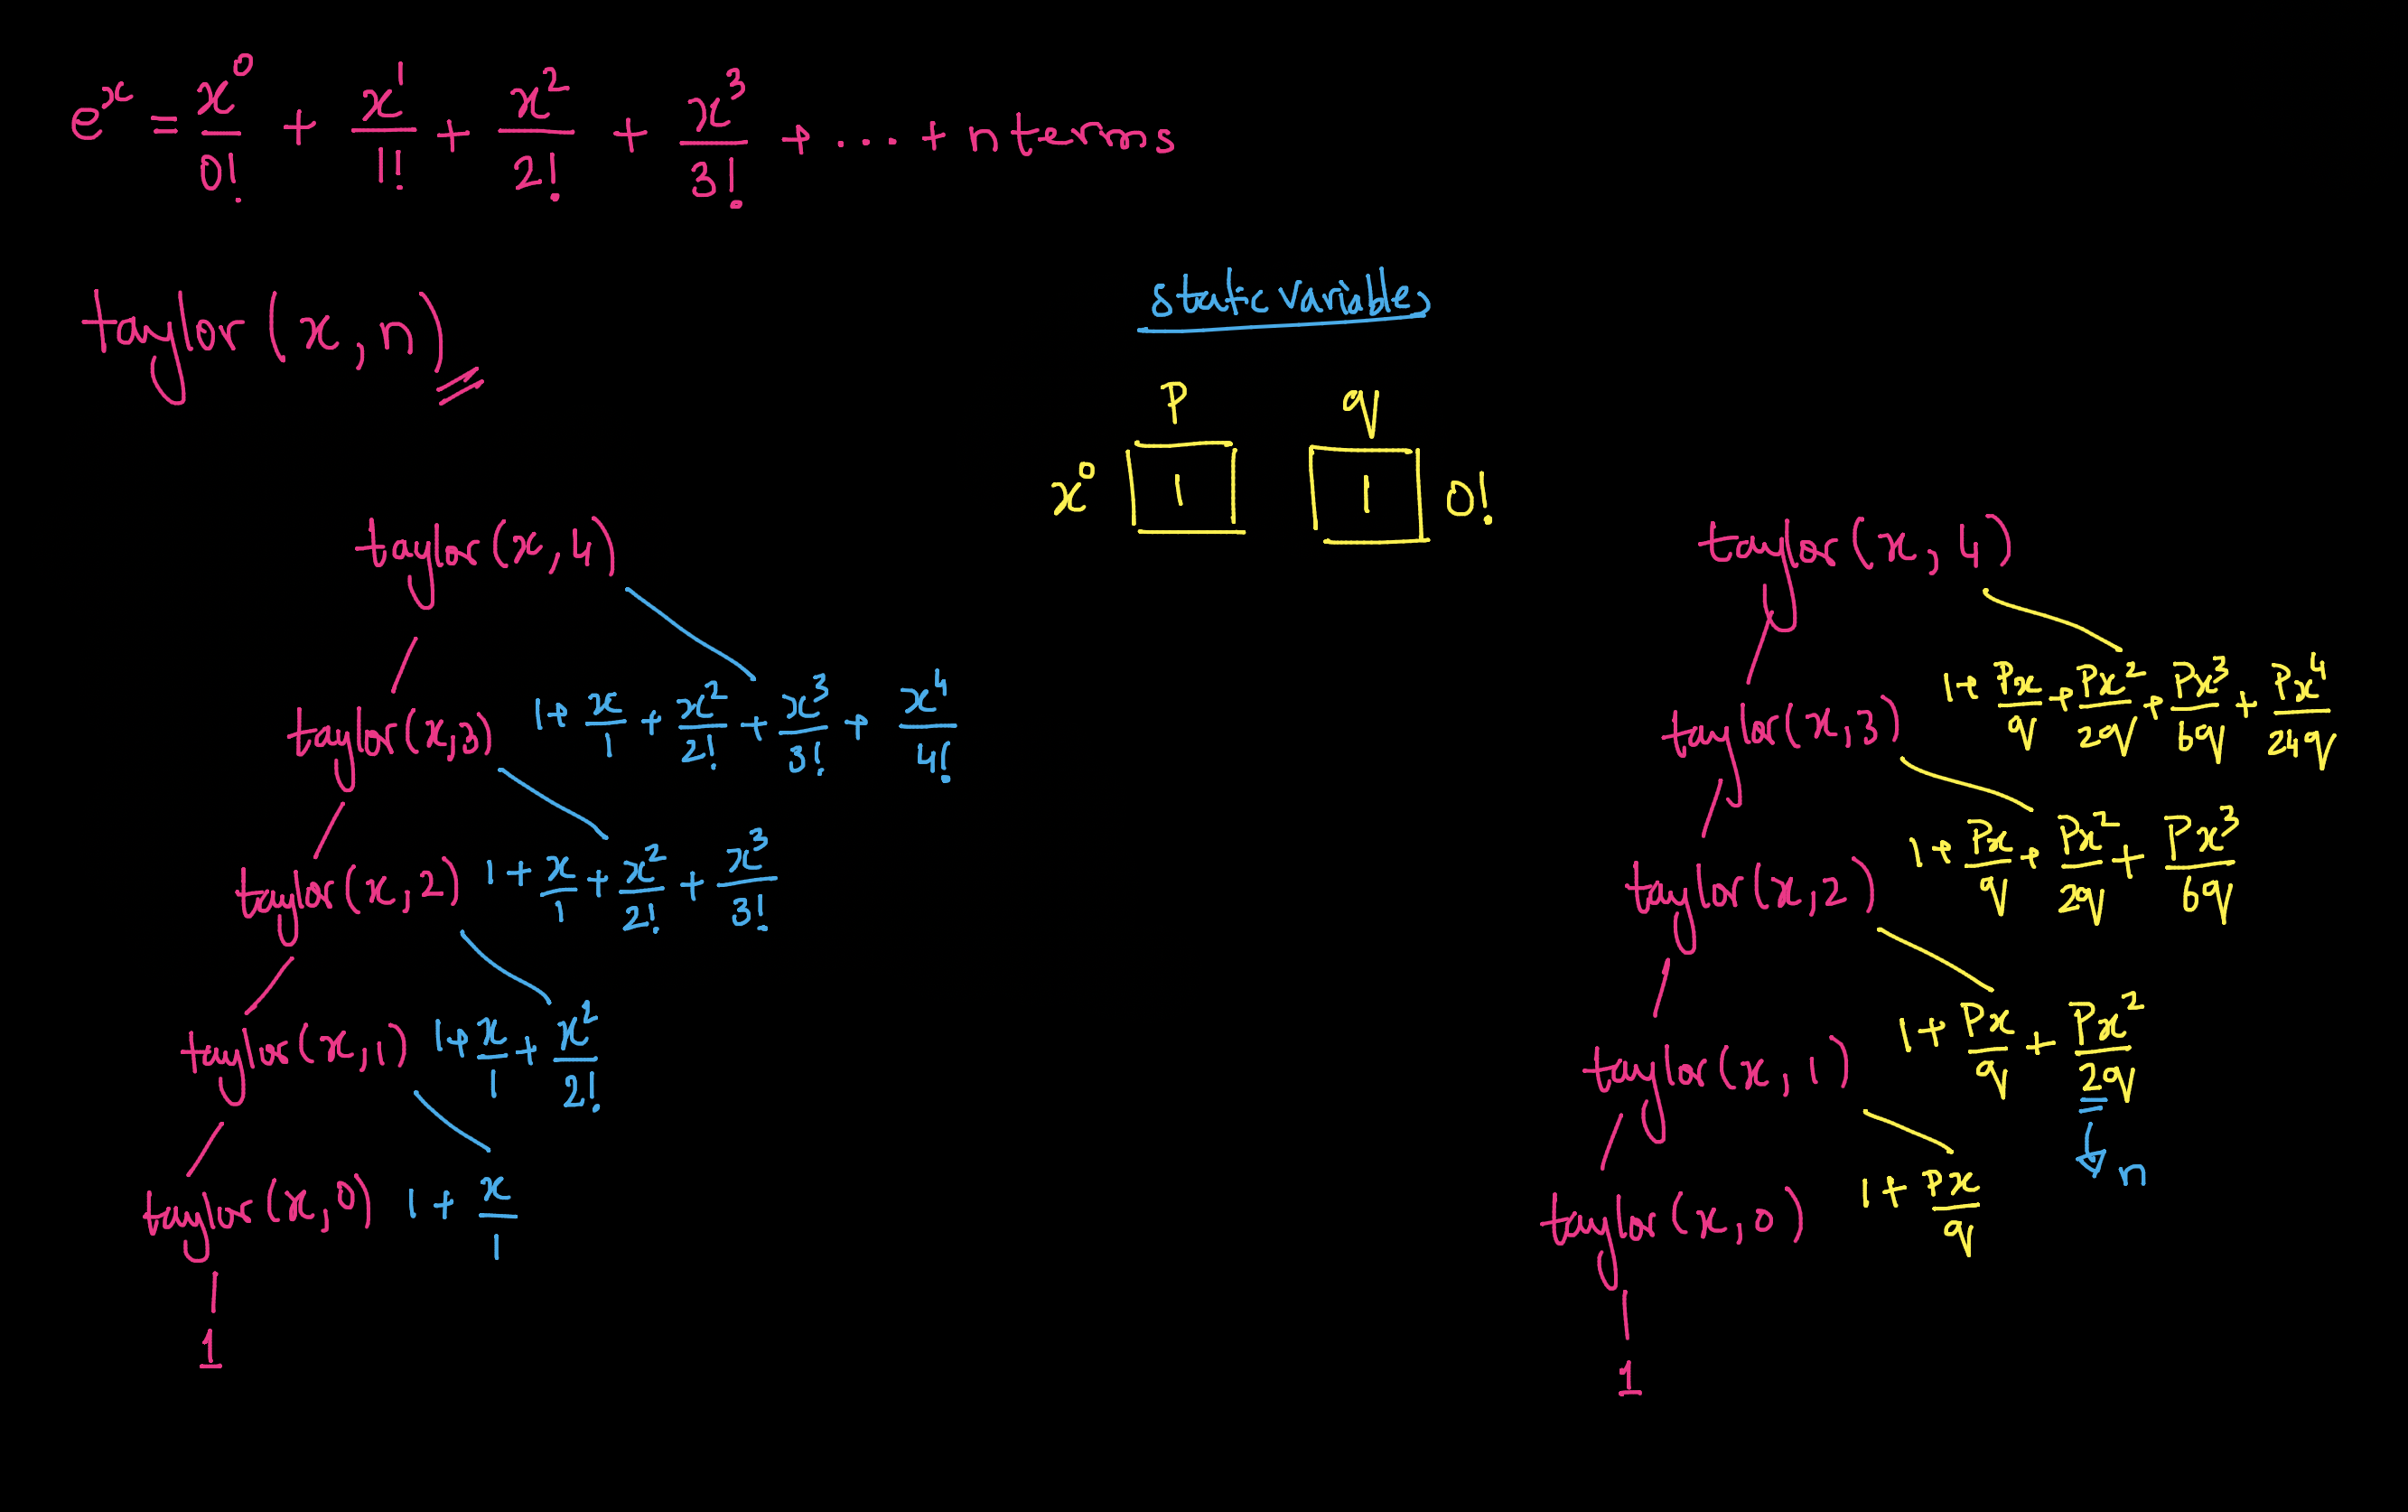 e^x = x^0/0! + x^1/1! + x^2/2! + x^3/3! + ... + n terms
taylor(x, n)
static variables
p q
x^0 1 1 0!
taylor(x, 4)
taylor(x, 3) 1 + x/1 + x^2/2! + x^3/3! + x^4/4!
taylor(x, 2) 1 + x/1 + x^2/2! + x^3/3!
taylor(x, 1) 1 + x/1 + x^2/2!
taylor(x, 0) 1 + x/1
1
taylor(x, 4)
1 + Px/q + Px^2/2q + Px^3/6q + Px^4/24q
taylor(x, 3)
1 + Px/q + Px^2/2q + Px^3/6q
taylor(x, 2)
1 + Px/q + Px^2/2q
n
taylor(x, 1)
1 + Px/q
taylor(x, 0)
1